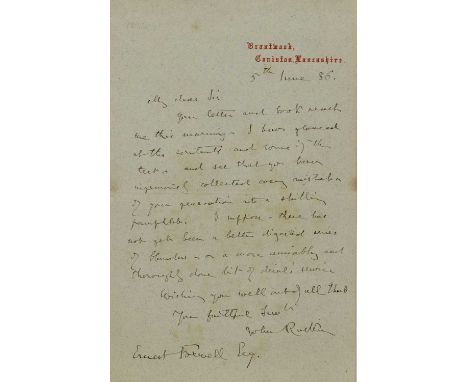 Brantwood,
Coniston, Lancashire.
5th June 86.
My dear Sir
Your letter and book reach
me this morning - I have glanced
at the contents and some of the
text - and see that you have
ingeniously collected every mistake
of your generation into a shilling
pamphlet. I suppose - there has
not yet been a better digested series
of blunders - or a more amiably and
thoroughly done bit of devil's service
Wishing you well out of all that
Your faithful Servt
John Ruskin
Ernest Foxwell Esq.